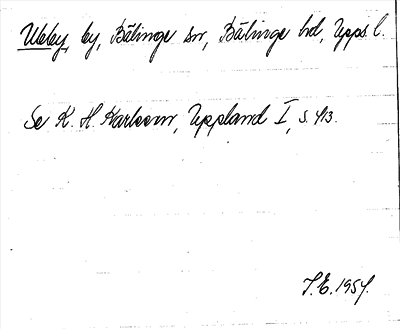 Ulvby, by, Bälinge sn, Bälinge hd, Upps. l.
Se K. H. Karlsson, Uppland I, s. 413.
T. E. 1954.